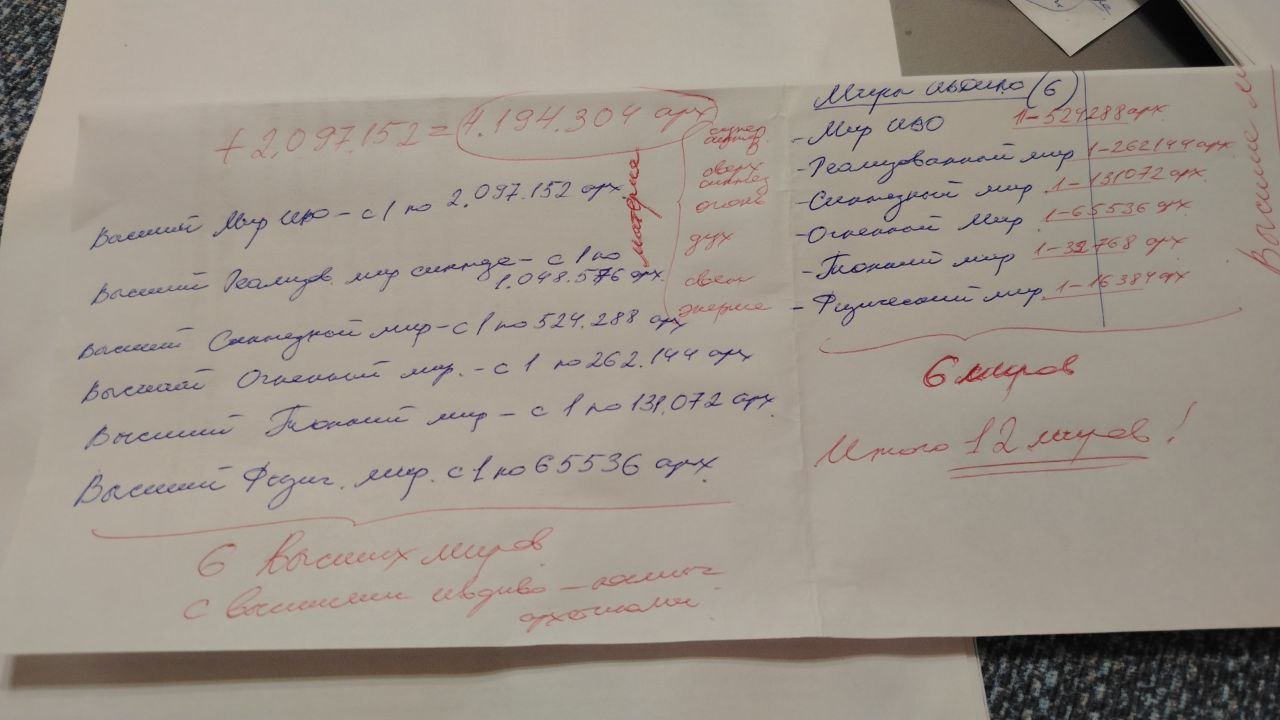 + 2.097.152 = 4.194.304 арх
материя
Высший Мир ИВО – с 1 по 2.097.152 арх.
Высший Реализов. мир синтеза – с 1 по
1.048.576 арх.
Высший Синтезной мир – с 1 по 524.288 арх
Высший Огненный мир. – с 1 по 262.144 арх
Высший Тонкий мир – с 1 по 131.072 арх.
Высший Физич. мир. с 1 по 65536 арх.
6 Высших миров
с высшими
архетипами.
Миры (6)
- Мир ИВО 1–524288 арх.
- Реализованный мир 1–262144 арх.
- Синтезный мир 1–131072 арх.
- Огненный Мир 1–65536 арх.
- Тонкий мир 1–32768 арх
- Физический мир 1–16384 арх
сверх
синтез
огонь
дух
свет
энергия
6 миров
Итого 12 миров!
Высшие